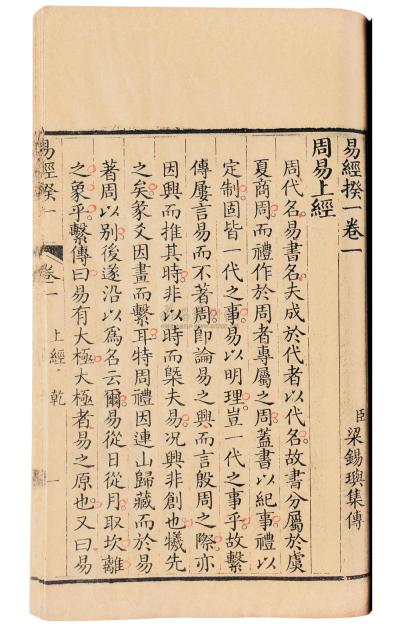 易經揆一卷一
臣梁錫璵集傳
周易上經
周代名易書名夫成於代者以代名故書分屬於虞
夏商周而禮作於周者專屬之周蓋書以紀事禮以
定制固皆一代之事易以明理豈一代之事乎故繫
傳屢言易而不著周卽論易之興而言殷周之際亦
因興而推其時非以時而槩夫易況興非創也犧先
之矣彖爻因畫而繫耳特周禮因連山歸藏而於易
著周以別後遂沿以爲名云爾易從日從月取坎離
之象乎繫傳曰易有大極大極者易之原也又曰易
易經揆一
卷一
上經 乾
一